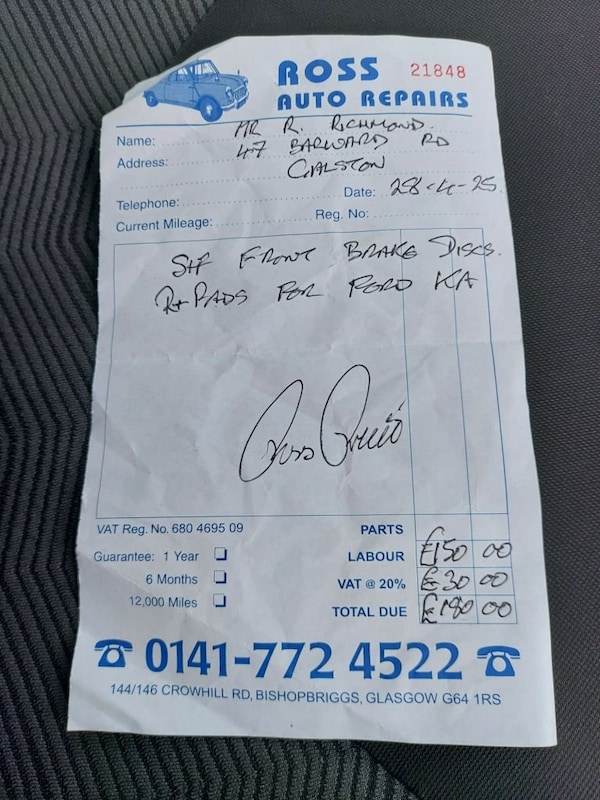 ROSS
21848
AUTO REPAIRS
Name: MR R. RICHMOND
Address: 47 BARWARD RD
GALSTON
Telephone:
Date: 28-4-25
Current Mileage:
Reg. No:
S+F FRONT BRAKE DISCS.
+ PADS FOR FORD KA
VAT Reg. No. 680 4695 09
PARTS
Guarantee: 1 Year
LABOUR £150 00
6 Months
VAT @ 20% £30 00
12,000 Miles
TOTAL DUE £180 00
0141-772 4522
144/146 CROWHILL RD, BISHOPBRIGGS, GLASGOW G64 1RS